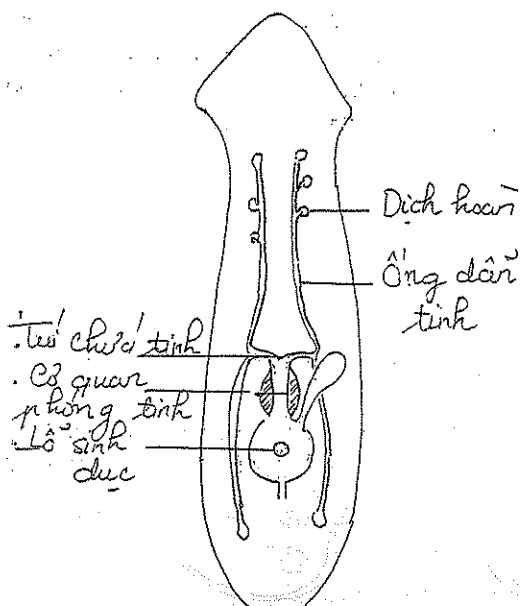 Dịch hoàn
Ống dẫn
tinh
. Túi chứa tinh
. Cơ quan
phóng tinh
. Lỗ sinh
dục